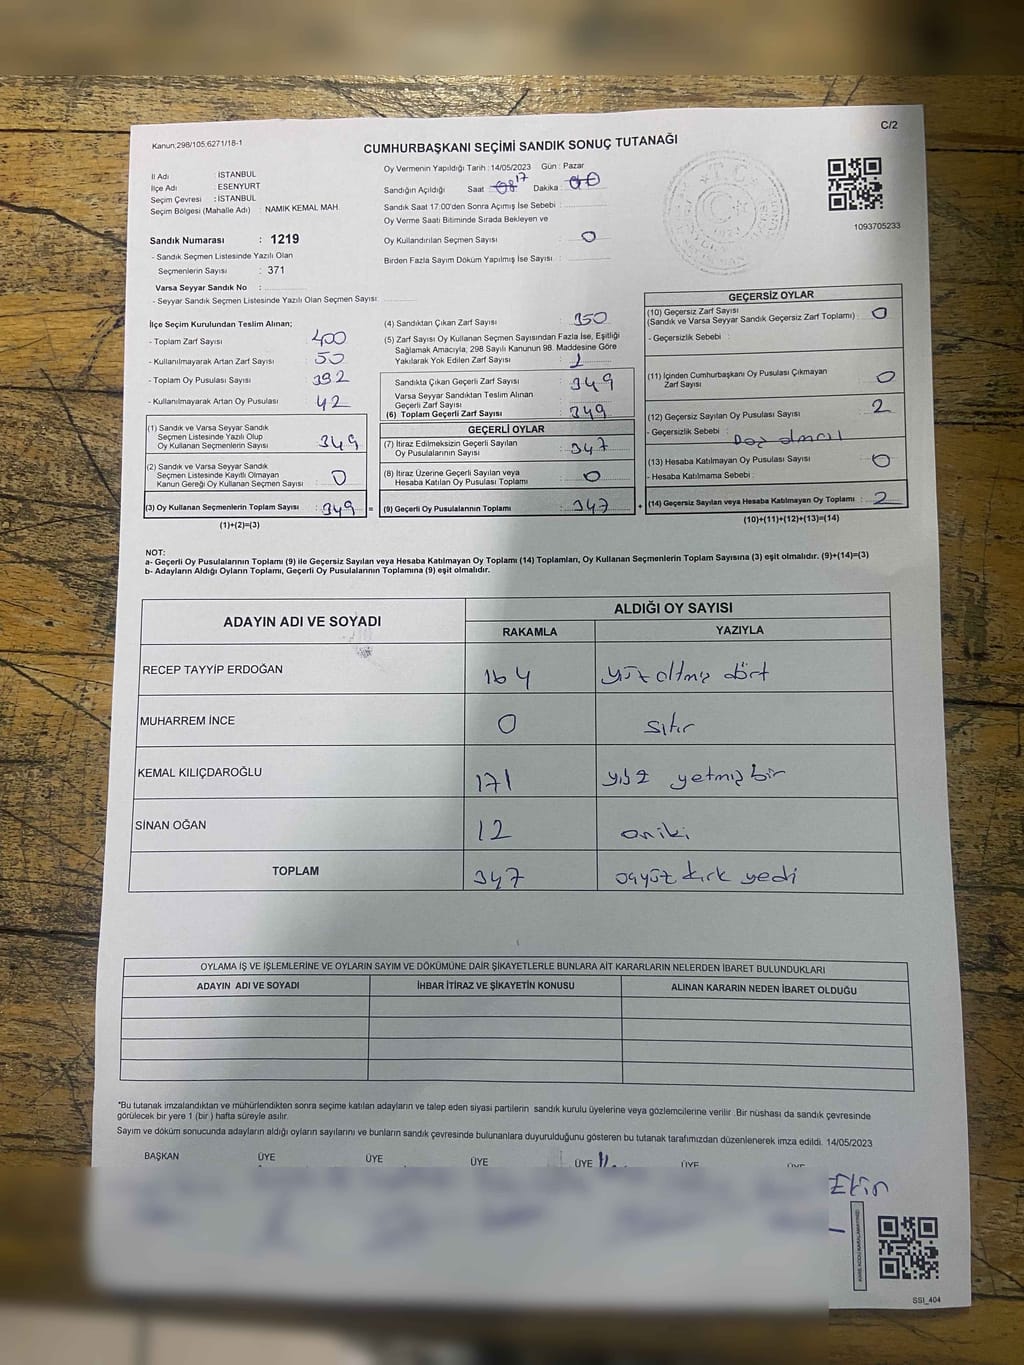 C/2
Kanun;298/105;6271/18-1
CUMHURBAŞKANI SEÇİMİ SANDIK SONUÇ TUTANAĞI
İl Adı : İSTANBUL
İlçe Adı : ESENYURT
Seçim Çevresi : İSTANBUL
Seçim Bölgesi (Mahalle Adı) : NAMIK KEMAL MAH.
Sandık Numarası : 1219
- Sandık Seçmen Listesinde Yazılı Olan
Seçmenlerin Sayısı : 371
Varsa Seyyar Sandık No :
- Seyyar Sandık Seçmen Listesinde Yazılı Olan Seçmen Sayısı :
Oy Vermenin Yapıldığı Tarih : 14/05/2023 Gün : Pazar
Sandığın Açıldığı Saat 17 Dakika
Sandık Saat 17:00'den Sonra Açımış İse Sebebi :
Oy Verme Saati Bitiminde Sırada Bekleyen ve
Oy Kullandırılan Seçmen Sayısı : 0
Birden Fazla Sayım Döküm Yapılmış İse Sayısı :
1093705233
İlçe Seçim Kurulundan Teslim Alınan;
- Toplam Zarf Sayısı : 400
- Kullanılmayarak Artan Zarf Sayısı : 50
- Toplam Oy Pusulası Sayısı : 392
- Kullanılmayarak Artan Oy Pusulası : 42
(1) Sandık ve Varsa Seyyar Sandık
Seçmen Listesinde Yazılı Olup
Oy Kullanan Seçmenlerin Sayısı : 349
(2) Sandık ve Varsa Seyyar Sandık
Seçmen Listesinde Kayıtlı Olmayan
Kanun Gereği Oy Kullanan Seçmen Sayısı : 0
(3) Oy Kullanan Seçmenlerin Toplam Sayısı : 349 =
(1)+(2)=(3)
(4) Sandıktan Çıkan Zarf Sayısı : 350
(5) Zarf Sayısı Oy Kullanan Seçmen Sayısından Fazla İse, Eşitliği
Sağlamak Amacıyla, 298 Sayılı Kanunun 98. Maddesine Göre
Yakılarak Yok Edilen Zarf Sayısı : 1
Sandıkta Çıkan Geçerli Zarf Sayısı : 349
Varsa Seyyar Sandıktan Teslim Alınan
Geçerli Zarf Sayısı :
(6) Toplam Geçerli Zarf Sayısı : 349
GEÇERLİ OYLAR
(7) İtiraz Edilmeksizin Geçerli Sayılan
Oy Pusulalarının Sayısı : 347
(8) İtiraz Üzerine Geçerli Sayılan veya
Hesaba Katılan Oy Pusulası Toplamı : 0
(9) Geçerli Oy Pusulalarının Toplamı : 347 +
GEÇERSİZ OYLAR
(10) Geçersiz Zarf Sayısı
(Sandık ve Varsa Seyyar Sandık Geçersiz Zarf Toplamı) : 0
- Geçersizlik Sebebi :
(11) İçinden Cumhurbaşkanı Oy Pusulası Çıkmayan
Zarf Sayısı : 0
(12) Geçersiz Sayılan Oy Pusulası Sayısı : 2
- Geçersizlik Sebebi :
(13) Hesaba Katılmayan Oy Pusulası Sayısı : 0
- Hesaba Katılmama Sebebi :
(14) Geçersiz Sayılan veya Hesaba Katılmayan Oy Toplamı : 2
(10)+(11)+(12)+(13)=(14)
NOT:
a- Geçerli Oy Pusulalarının Toplamı (9) ile Geçersiz Sayılan veya Hesaba Katılmayan Oy Toplamı (14) Toplamları, Oy Kullanan Seçmenlerin Toplam Sayısına (3) eşit olmalıdır. (9)+(14)=(3)
b- Adayların Aldığı Oyların Toplamı, Geçerli Oy Pusulalarının Toplamına (9) eşit olmalıdır.
ADAYIN ADI VE SOYADI
ALDIĞI OY SAYISI
RAKAMLA YAZIYLA
RECEP TAYYİP ERDOĞAN 164 yüz altmış dört
MUHARREM İNCE 0 sıfır
KEMAL KILIÇDAROĞLU 171 yüz yetmiş bir
SİNAN OĞAN 12 oniki
TOPLAM 347 üçyüz kırk yedi
OYLAMA İŞ VE İŞLEMLERİNE VE OYLARIN SAYIM VE DÖKÜMÜNE DAİR ŞİKAYETLERLE BUNLARA AİT KARARLARIN NELERDEN İBARET BULUNDUKLARI
ADAYIN ADI VE SOYADI İHBAR İTİRAZ VE ŞİKAYETİN KONUSU ALINAN KARARIN NEDEN İBARET OLDUĞU
*Bu tutanak imzalandıktan ve mühürlendikten sonra seçime katılan adayların ve talep eden siyasi partilerin sandık kurulu üyelerine veya gözlemcilerine verilir. Bir nüshası da sandık çevresinde
görülecek bir yere 1 (bir ) hafta süreyle asılır.
Sayım ve döküm sonucunda adayların aldığı oyların sayılarını ve bunların sandık çevresinde bulunanlara duyurulduğunu gösteren bu tutanak tarafımızdan düzenlenerek imza edildi. 14/05/2023
BAŞKAN ÜYE ÜYE ÜYE ÜYE ÜYE ÜYE
SSI_404